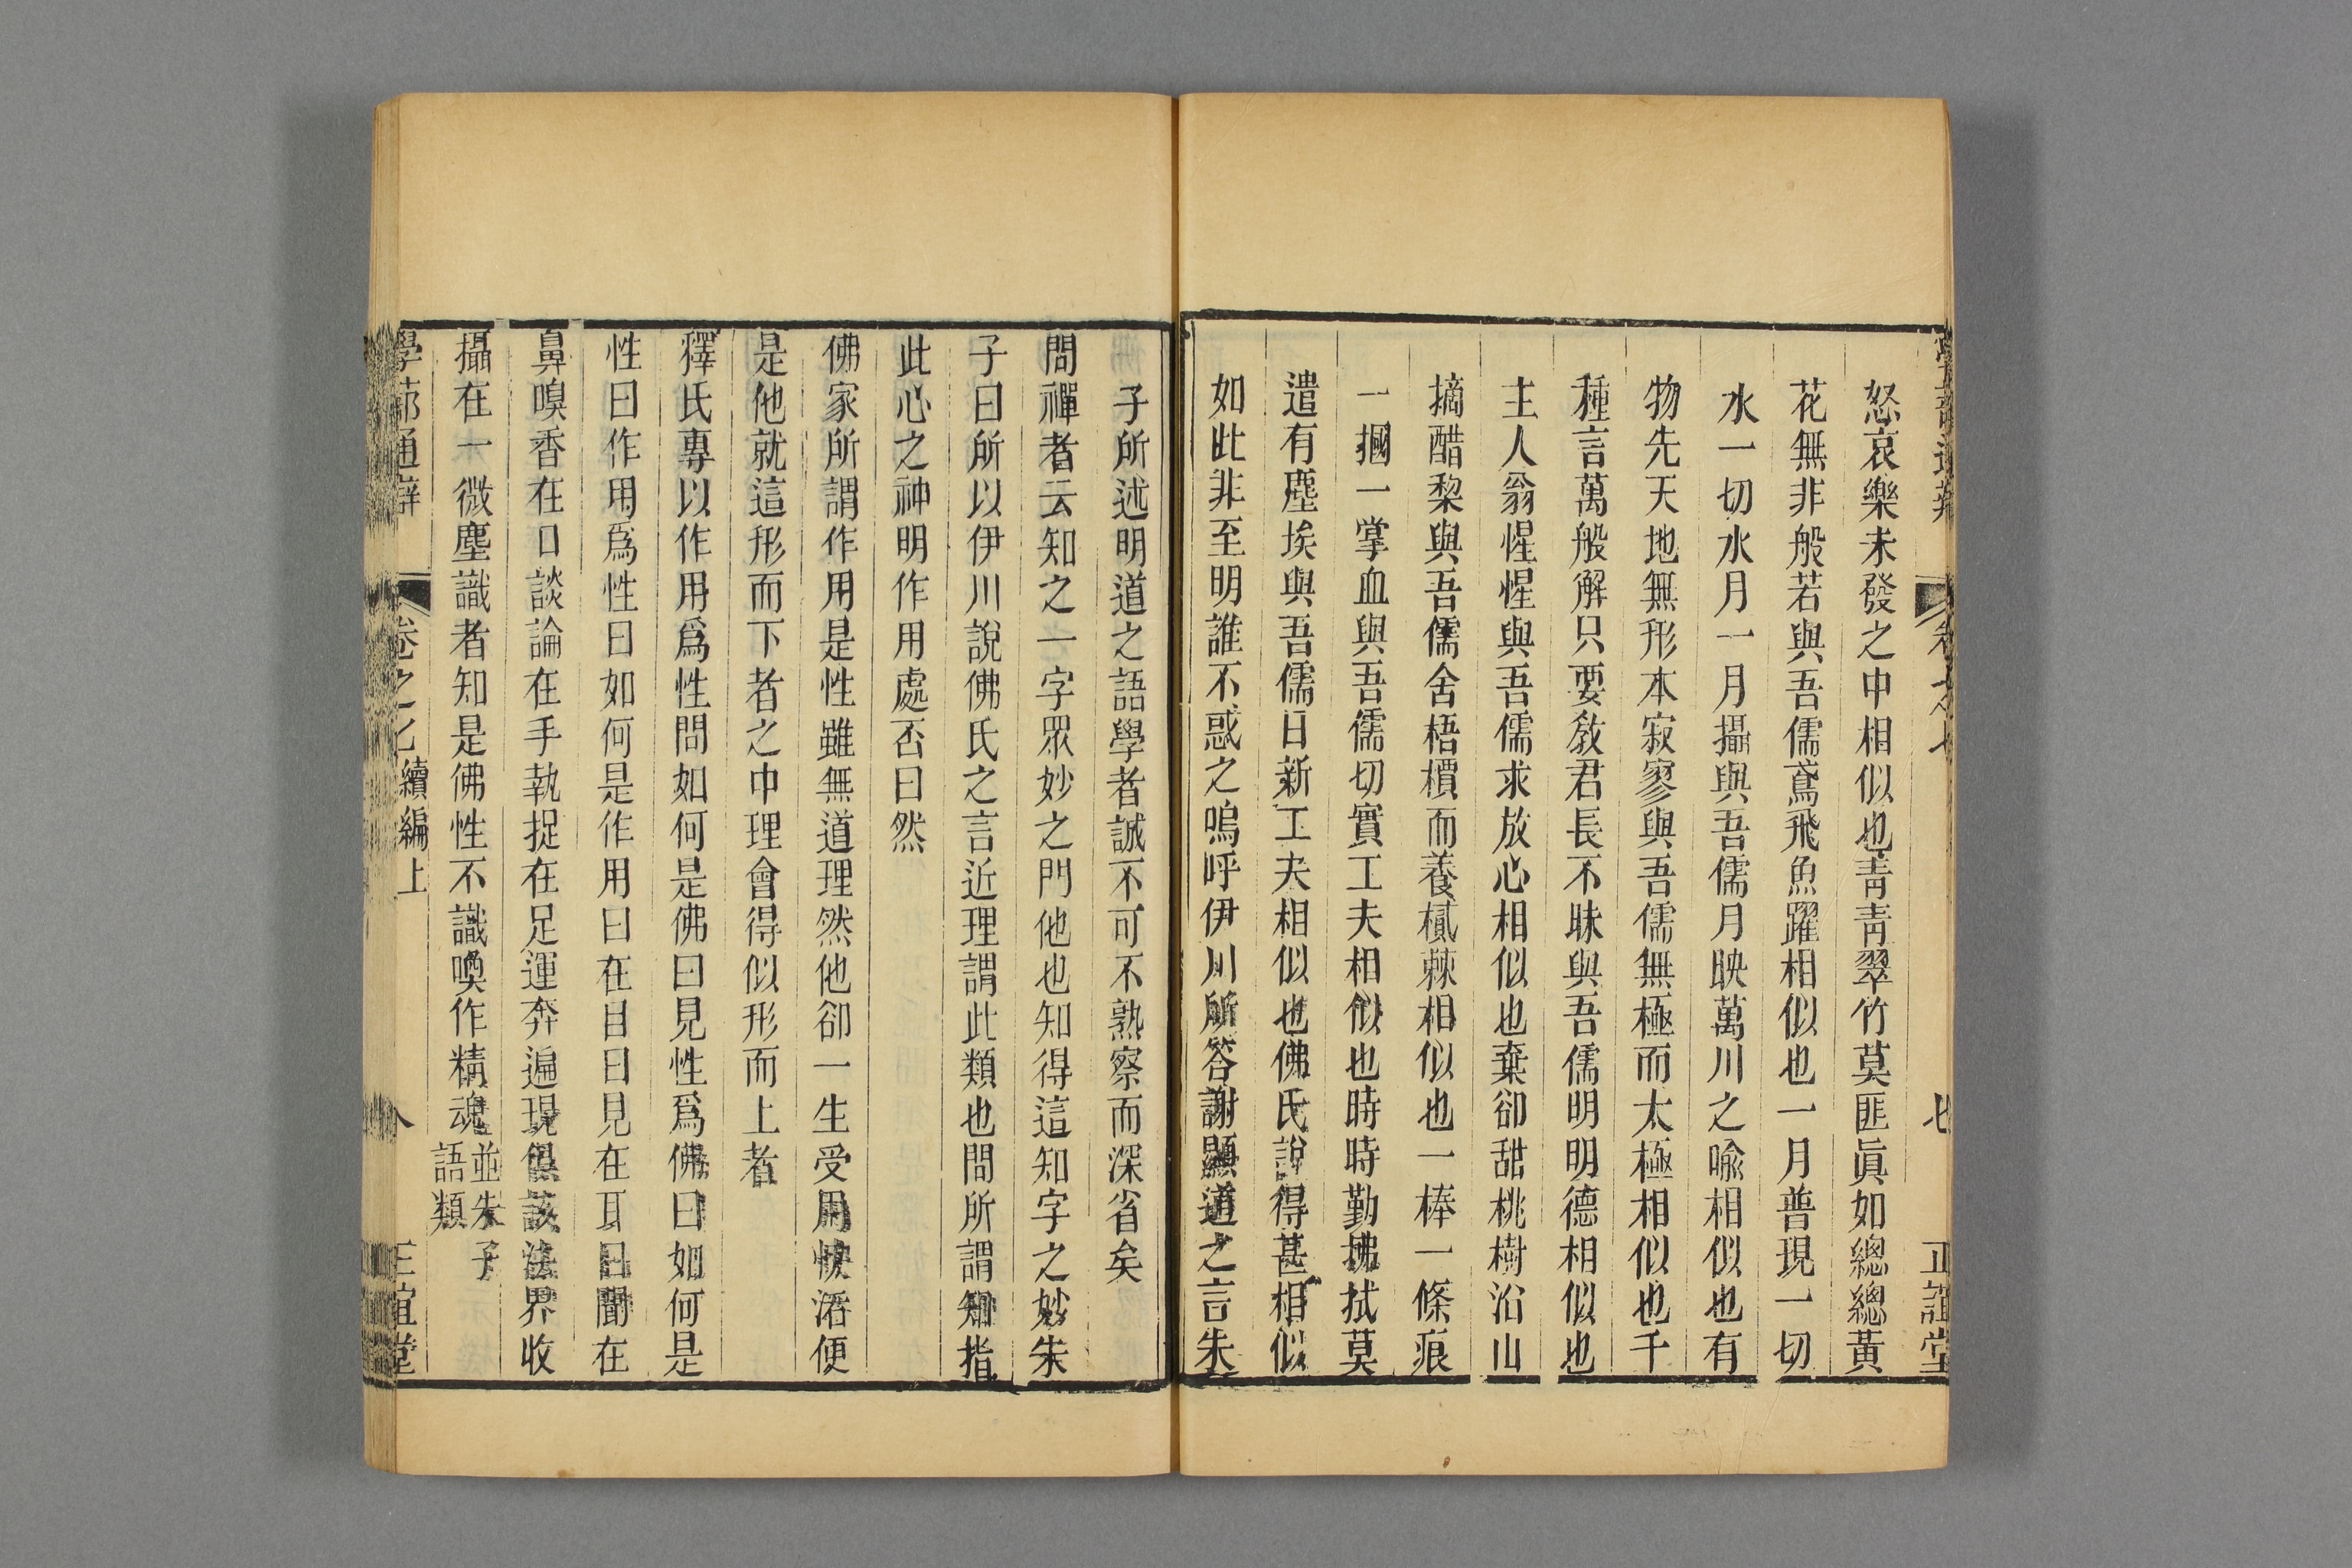 怒哀樂未發之中相似也靑靑翠竹莫匪眞如總總黃
花無非般若與吾儒鳶飛魚躍相似也一月普現一切
水一切水月一月攝與吾儒月映萬川之喻相似也有
物先天地無形本寂寥與吾儒無極而太極相似也千
種言萬般解只要敎君長不昧與吾儒明明德相似也
主人翁惺惺與吾儒求放心相似也棄卻甜桃樹沿山
摘醋棃與吾儒舍梧檟而養樲棘相似也一棒一條痕
一摑一掌血與吾儒切實工夫相似也時時勤拂拭莫
遣有塵埃與吾儒日新工夫相似也佛氏說得甚相似
如此非至明誰不惑之嗚呼伊川所答謝顯道之言朱
子所述明道之語學者誠不可不熟察而深省矣
問禪者云知之一字眾妙之門他也知得這知字之妙朱
子曰所以伊川說佛氏之言近理謂此類也問所謂知指
此心之神明作用處否曰然
佛家所謂作用是性雖無道理然他卻一生受用快活便
是他就這形而下者之中理會得似形而上者
釋氏專以作用爲性問如何是佛曰見性爲佛曰如何是
性曰作用爲性曰如何是作用曰在目曰見在耳曰聞在
鼻嗅香在口談論在手執捉在足運奔遍現俱該法界收
攝在一微塵識者知是佛性不識喚作精魂並朱子
語類
學蔀通辯
卷之七續編上
八
正誼堂